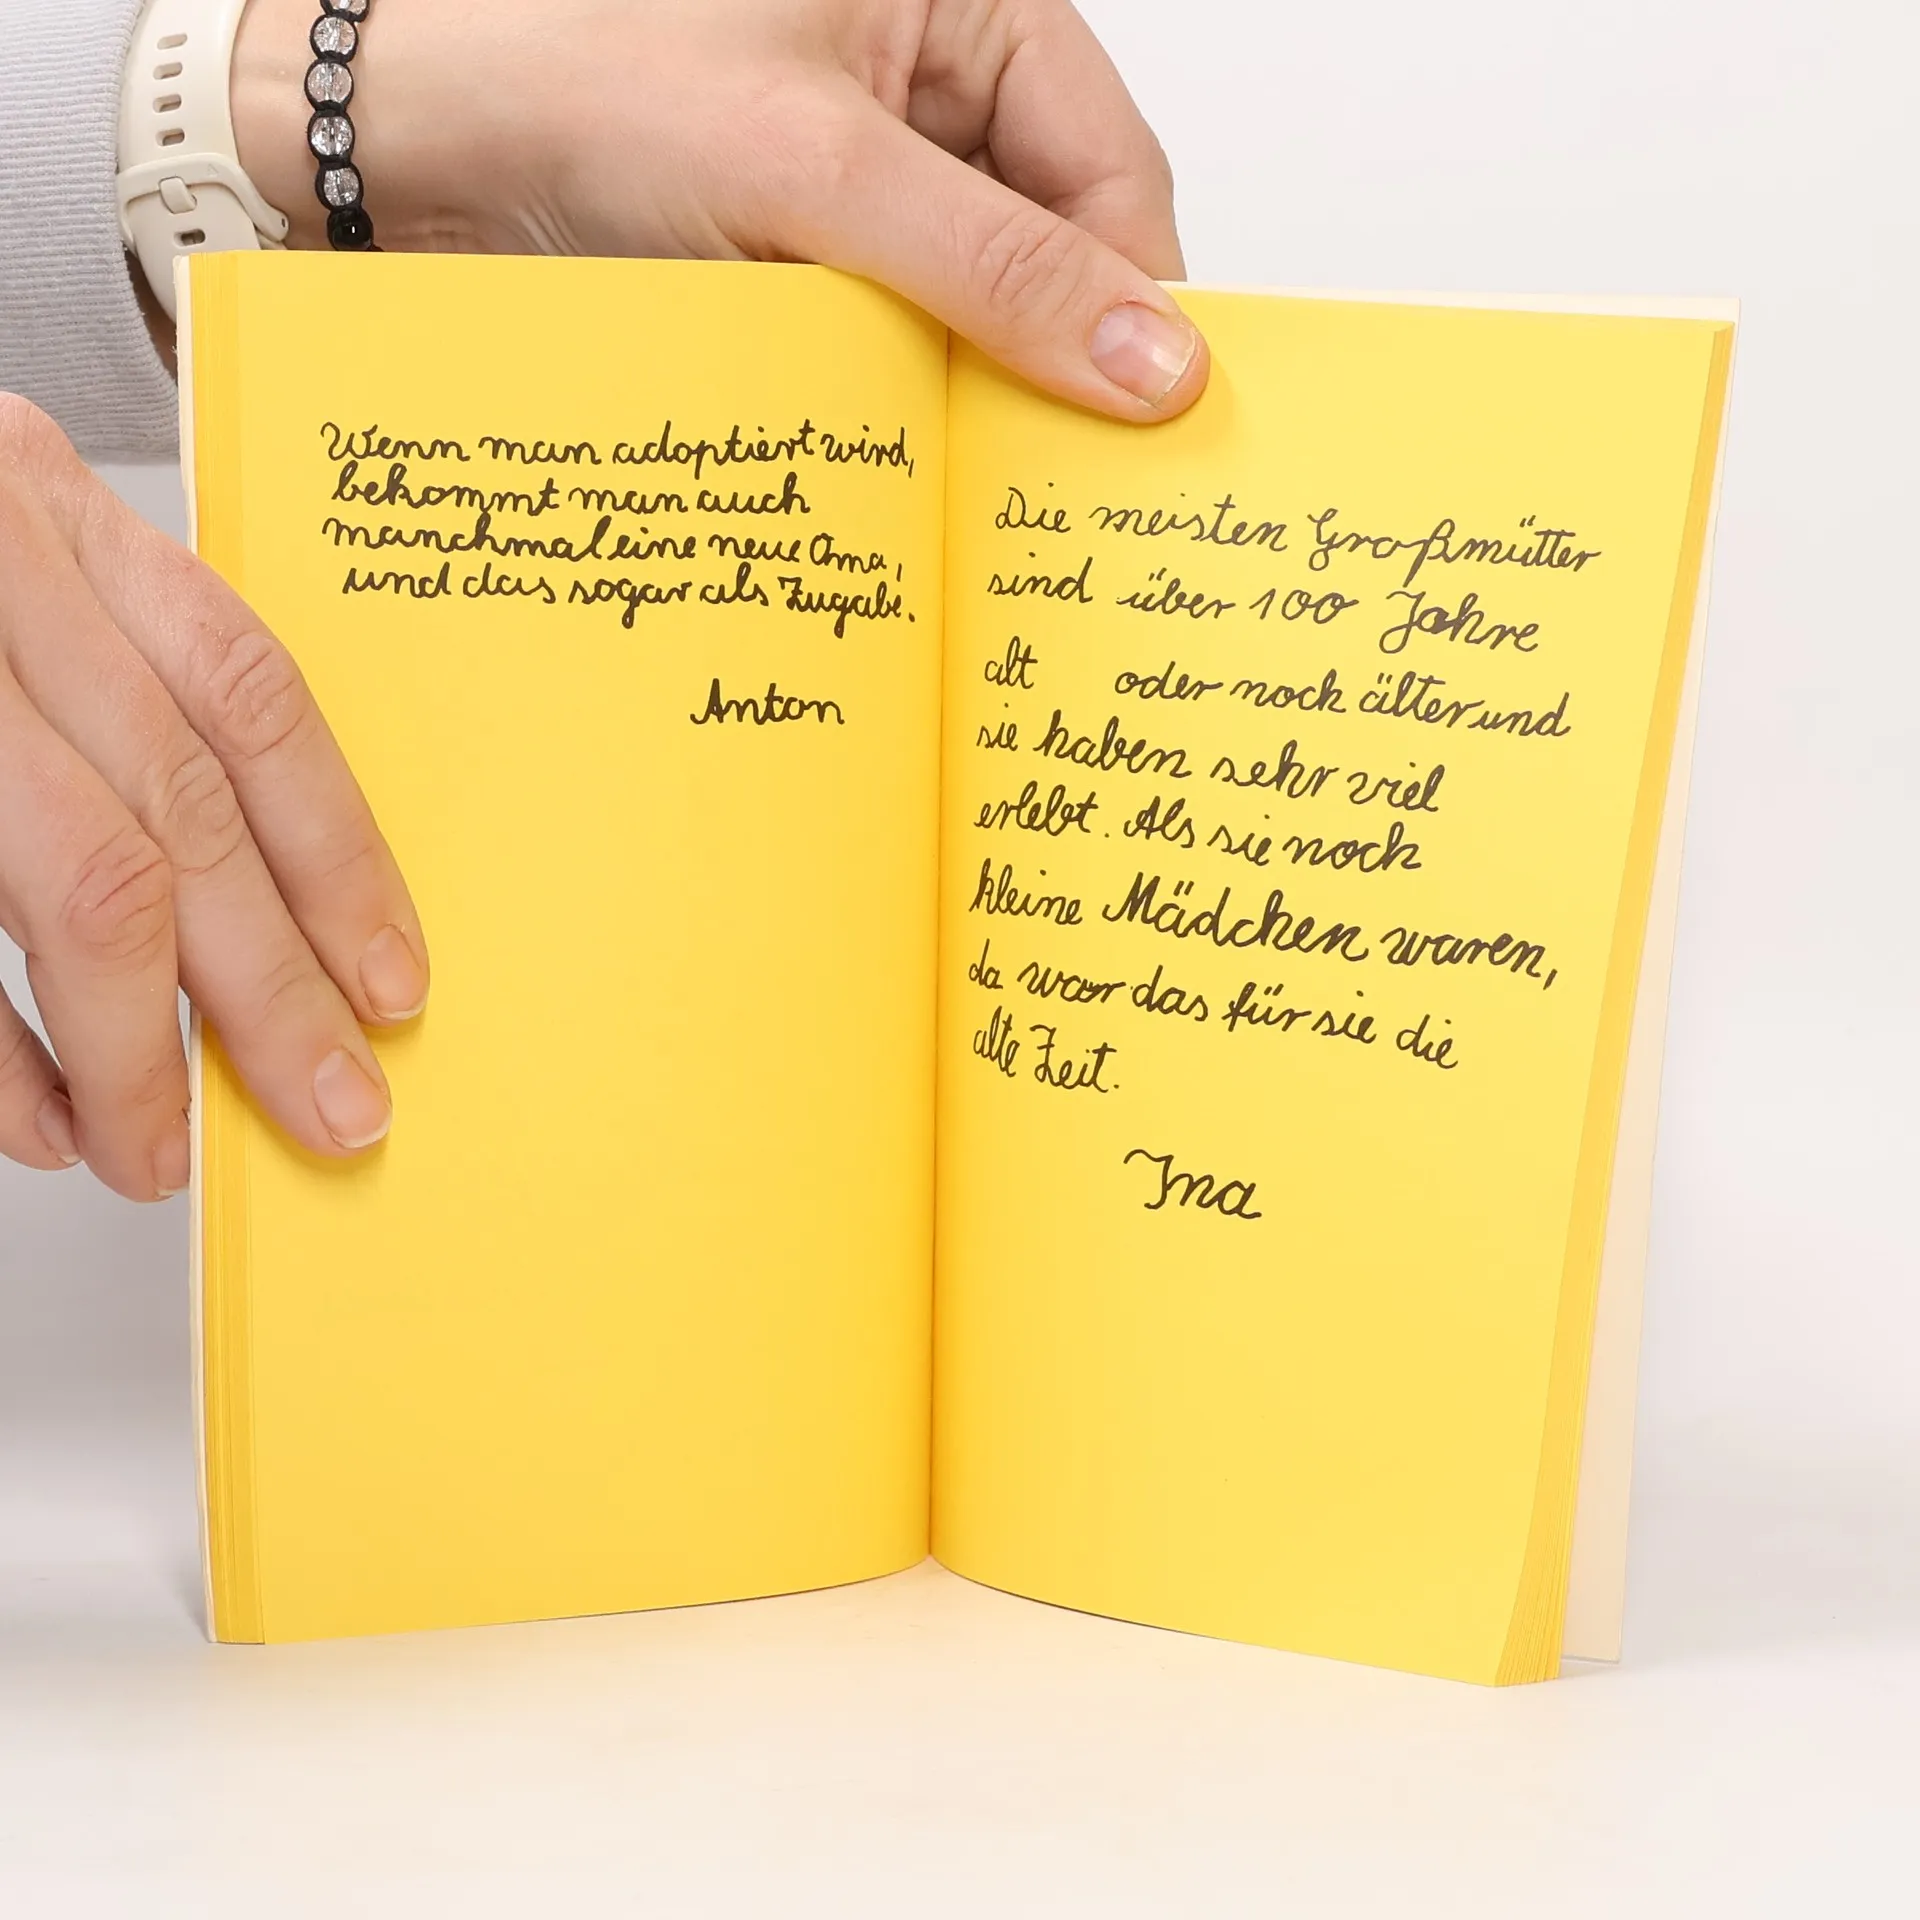 Wenn man adoptiert wird,
bekommt man auch
manchmal eine neue Oma,
und das sogar als Zugabe.
Anton
Die meisten Großmütter
sind über 100 Jahre
alt oder noch älter und
sie haben sehr viel
erlebt. Als sie noch
kleine Mädchen waren,
da war das für sie die
alte Zeit.
Ina